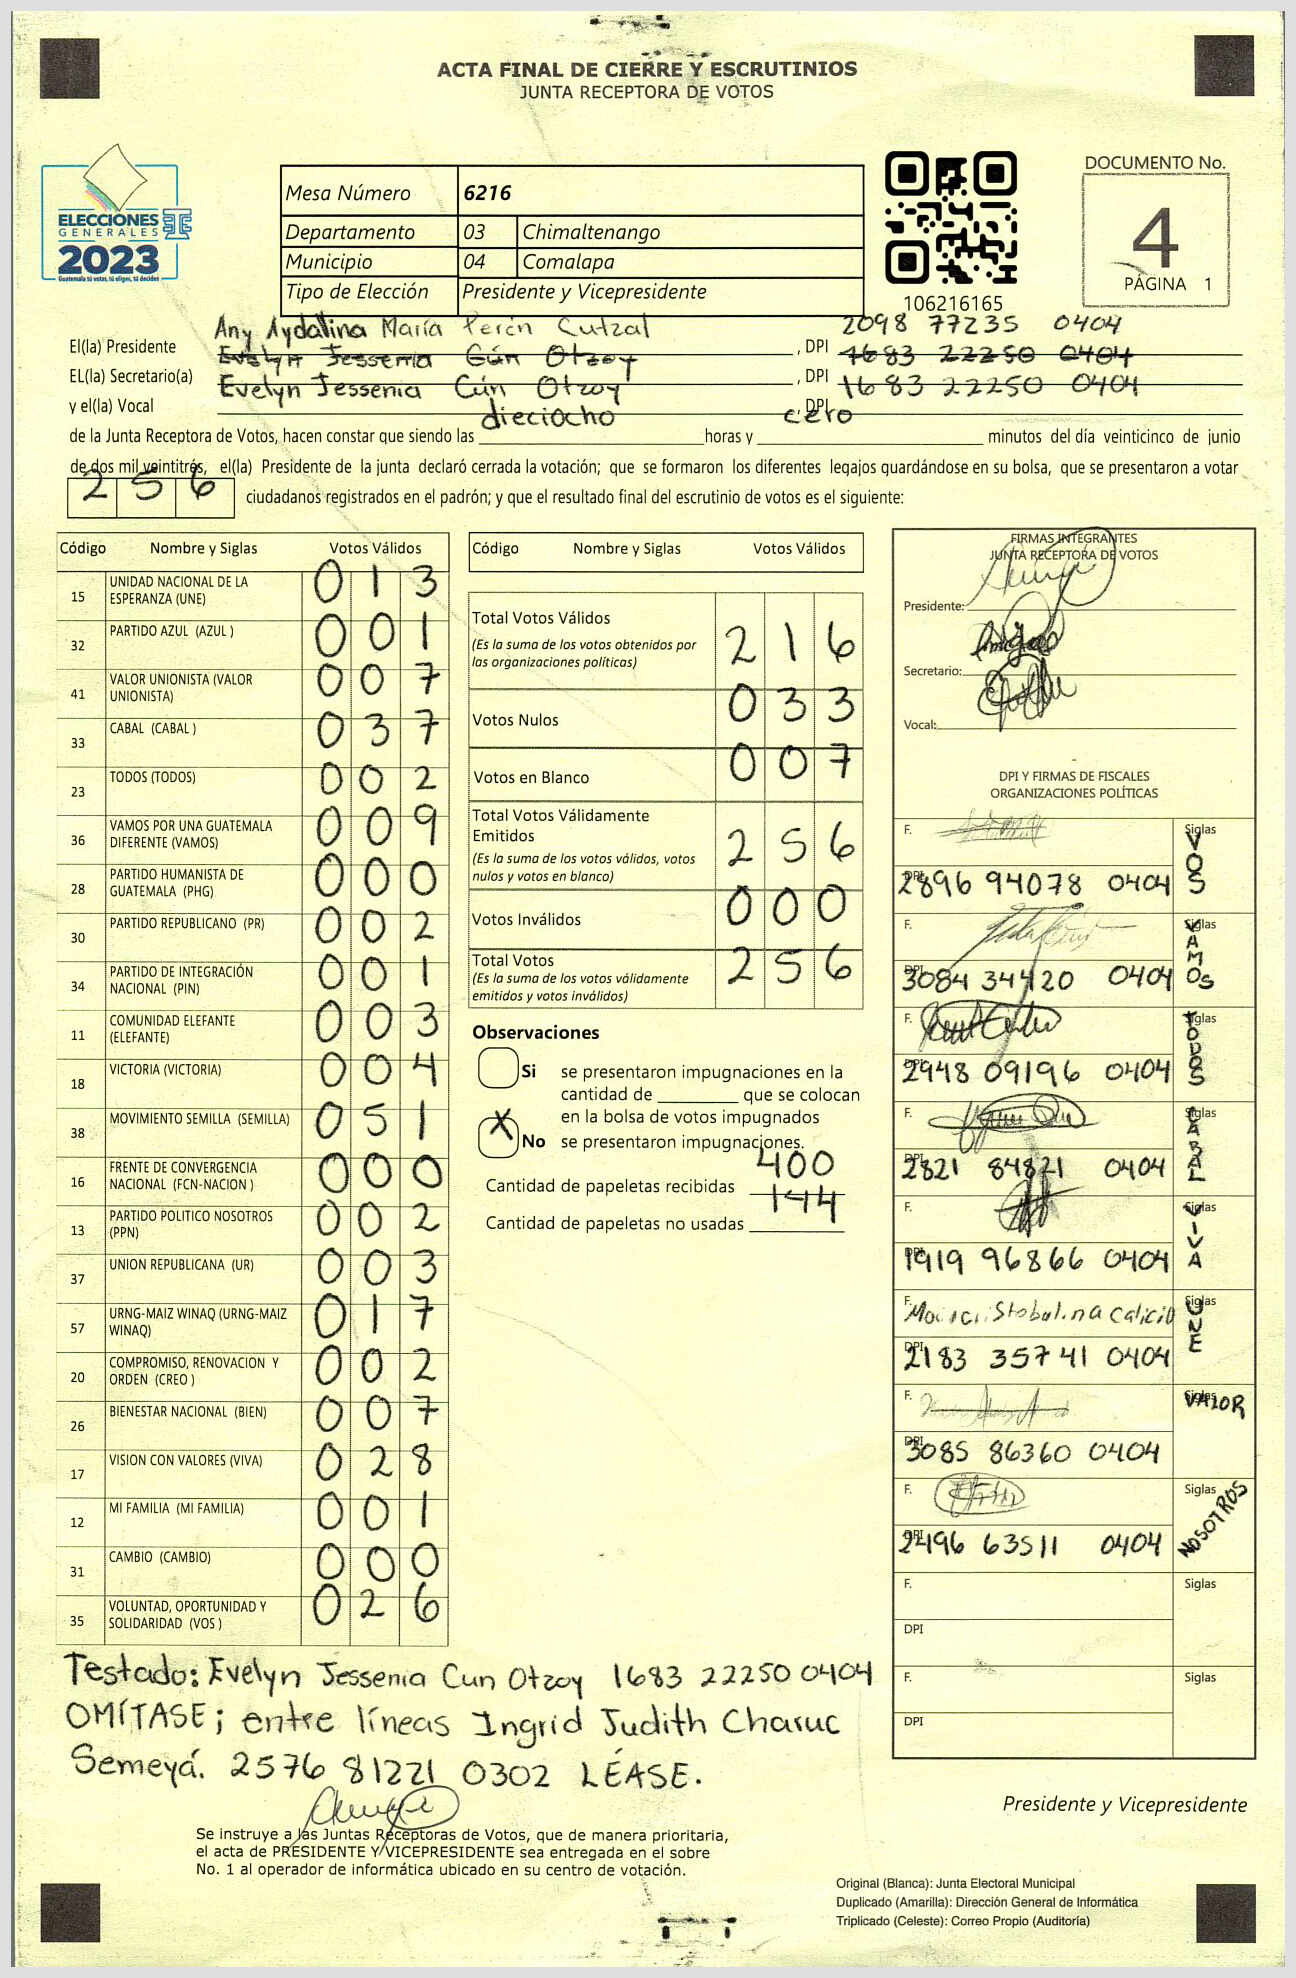 ACTA FINAL DE CIERRE Y ESCRUTINIOS
JUNTA RECEPTORA DE VOTOS
ELECCIONES
GENERALES
2023
Guatemala tú votas, tú eliges, tú decides
Mesa Número 6216
Departamento 03 Chimaltenango
Municipio 04 Comalapa
Tipo de Elección Presidente y Vicepresidente
106216165
DOCUMENTO No.
4
PÁGINA 1
Any Aydalina María Perén Cutzal 2098 77235 0404
El(la) Presidente Evelyn Jessenia Cún Otzoy , DPI 1683 22250 0404
EL(la) Secretario(a) Evelyn Jessenia Cún Otzoy , DPI 1683 22250 0404
y el(la) Vocal , DPI
de la Junta Receptora de Votos, hacen constar que siendo las dieciocho horas y cero minutos del día veinticinco de junio
de dos mil veintitrés, el(la) Presidente de la junta declaró cerrada la votación; que se formaron los diferentes legajos guardándose en su bolsa, que se presentaron a votar
256 ciudadanos registrados en el padrón; y que el resultado final del escrutinio de votos es el siguiente:
Código Nombre y Siglas Votos Válidos
15 UNIDAD NACIONAL DE LA ESPERANZA (UNE) 013
32 PARTIDO AZUL (AZUL ) 001
41 VALOR UNIONISTA (VALOR UNIONISTA) 007
33 CABAL (CABAL ) 037
23 TODOS (TODOS) 002
36 VAMOS POR UNA GUATEMALA DIFERENTE (VAMOS) 009
28 PARTIDO HUMANISTA DE GUATEMALA (PHG) 000
30 PARTIDO REPUBLICANO (PR) 002
34 PARTIDO DE INTEGRACIÓN NACIONAL (PIN) 001
11 COMUNIDAD ELEFANTE (ELEFANTE) 003
18 VICTORIA (VICTORIA) 004
38 MOVIMIENTO SEMILLA (SEMILLA) 051
16 FRENTE DE CONVERGENCIA NACIONAL (FCN-NACION ) 000
13 PARTIDO POLITICO NOSOTROS (PPN) 002
37 UNION REPUBLICANA (UR) 003
57 URNG-MAIZ WINAQ (URNG-MAIZ WINAQ) 017
20 COMPROMISO, RENOVACION Y ORDEN (CREO ) 002
26 BIENESTAR NACIONAL (BIEN) 007
17 VISION CON VALORES (VIVA) 028
12 MI FAMILIA (MI FAMILIA) 001
31 CAMBIO (CAMBIO) 000
35 VOLUNTAD, OPORTUNIDAD Y SOLIDARIDAD (VOS ) 026
Código Nombre y Siglas Votos Válidos
Total Votos Válidos 216
(Es la suma de los votos obtenidos por
las organizaciones políticas)
Votos Nulos 033
Votos en Blanco 007
Total Votos Válidamente
Emitidos 256
(Es la suma de los votos válidos, votos
nulos y votos en blanco)
Votos Inválidos 000
Total Votos 256
(Es la suma de los votos válidamente
emitidos y votos inválidos)
Observaciones
Si se presentaron impugnaciones en la
cantidad de ________ que se colocan
en la bolsa de votos impugnados
X No se presentaron impugnaciones.
Cantidad de papeletas recibidas 400
Cantidad de papeletas no usadas 144
FIRMAS INTEGRANTES
JUNTA RECEPTORA DE VOTOS
Presidente:
Secretario:
Vocal:
DPI Y FIRMAS DE FISCALES
ORGANIZACIONES POLÍTICAS
F. Siglas VOS
DPI 2896 94078 0404
F. Siglas VAMOS
DPI 3084 34420 0404
F. Siglas TODOS
DPI 2948 09196 0404
F. Siglas CABAL
DPI 2821 84821 0404
F. Siglas VIVA
DPI 1919 96866 0404
F. Siglas UNE
DPI 2183 35741 0404
F. Siglas VALOR
DPI 3085 86360 0404
F. Siglas NOSOTROS
DPI 2496 63511 0404
F. Siglas
DPI
F. Siglas
DPI
Testado: Evelyn Jessenia Cun Otzoy 1683 22250 0404
OMÍTASE; entre líneas Ingrid Judith Charuc
Semeyá. 2576 81221 0302 LÉASE.
Se instruye a las Juntas Receptoras de Votos, que de manera prioritaria,
el acta de PRESIDENTE Y VICEPRESIDENTE sea entregada en el sobre
No. 1 al operador de informática ubicado en su centro de votación.
Presidente y Vicepresidente
Original (Blanca): Junta Electoral Municipal
Duplicado (Amarilla): Dirección General de Informática
Triplicado (Celeste): Correo Propio (Auditoría)